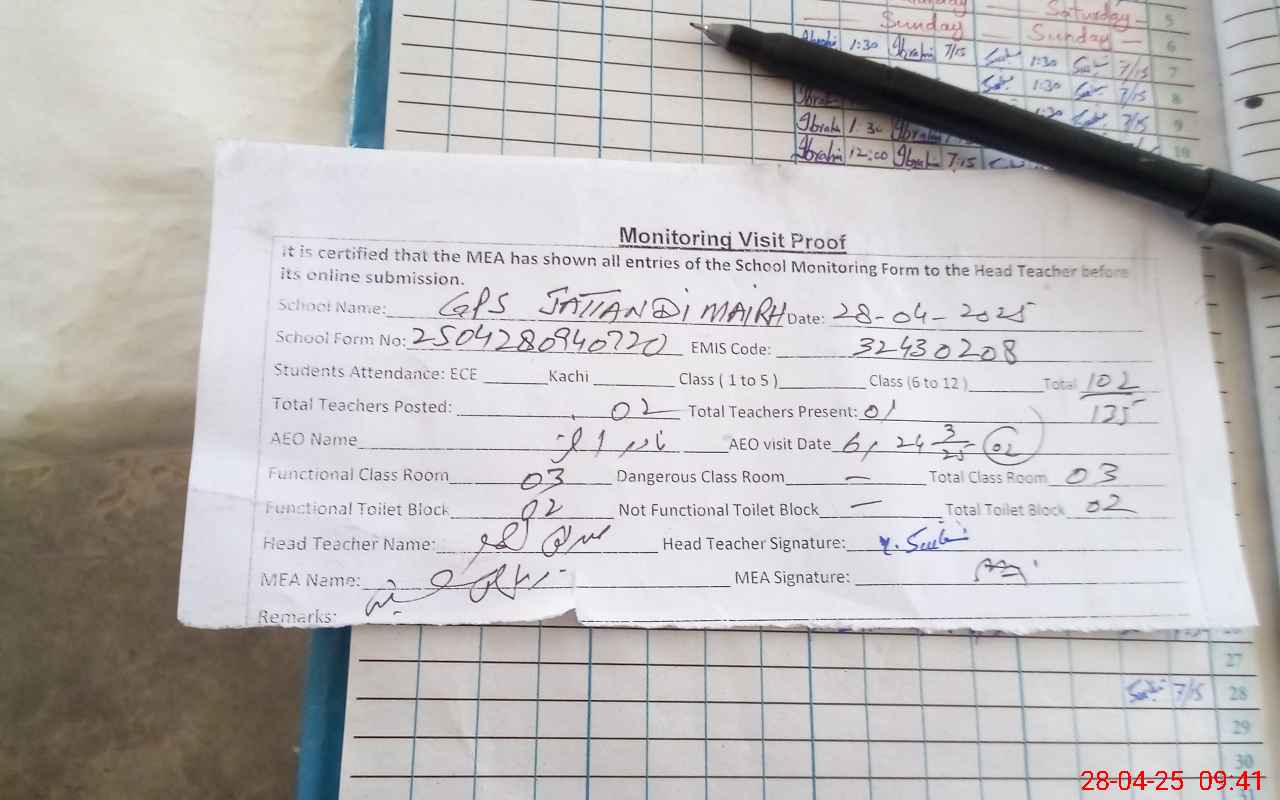 Saturday
Sunday Sunday
5
6
Ibrahi 1:30 Ibrahi 7/15 1:30 7/15 7
1:30 7/15 8
Ibrahi 1:30 7/15 9
Ibrahi 12:00 Ibrahi 7:15 10
Monitoring Visit Proof
It is certified that the MEA has shown all entries of the School Monitoring Form to the Head Teacher before
its online submission.
School Name: GPS JATTAN DI MAIRH Date: 28-04-2025
School Form No: 2504280940720 EMIS Code: 32430208
Students Attendance: ECE Kachi Class ( 1 to 5 ) Class (6 to 12 ) Total 102
125
Total Teachers Posted: 02 Total Teachers Present: 01
AEO Name AEO visit Date 6, 24 3/25 02
Functional Class Room 03 Dangerous Class Room — Total Class Room 03
Functional Toilet Block 02 Not Functional Toilet Block — Total Toilet Block 02
Head Teacher Name: Head Teacher Signature:
MEA Name: MEA Signature:
Remarks:
27
7/15 28
29
30
28-04-25 09:41